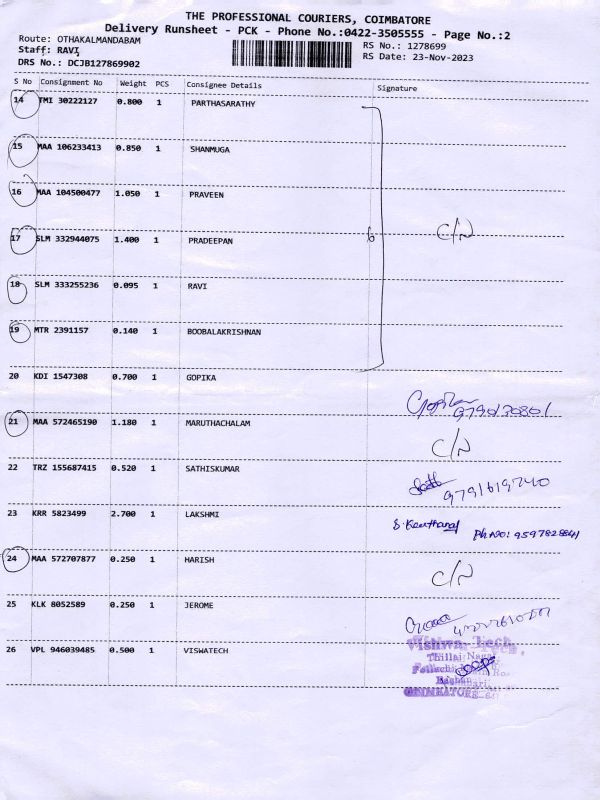 THE PROFESSIONAL COURIERS, COIMBATORE
Delivery Runsheet - PCK - Phone No.:0422-3505555 - Page No.:2
Route: OTHAKALMANDABAM
RS No.: 1278699
Staff: RAVI
RS Date: 23-Nov-2023
DRS No.: DCJB127869902
S No Consignment No Weight PCS Consignee Details Signature
14 TMI 30222127 0.800 1 PARTHASARATHY
15 MAA 106233413 0.850 1 SHANMUGA
16 MAA 104500477 1.050 1 PRAVEEN
17 SLM 332944075 1.400 1 PRADEEPAN 6 C/N
18 SLM 333255236 0.095 1 RAVI
19 MTR 2391157 0.140 1 BOOBALAKRISHNAN
20 KDI 1547308 0.700 1 GOPIKA
9790130801
21 MAA 572465190 1.180 1 MARUTHACHALAM C/N
22 TRZ 155687415 0.520 1 SATHISKUMAR
9791619740
23 KRR 5823499 2.700 1 LAKSHMI
Ph No: 9597828841
24 MAA 572707877 0.250 1 HARISH C/N
25 KLK 8052589 0.250 1 JEROME
26 VPL 946039485 0.500 1 VISWATECH
Vishwa Tech,
Thillai Nagar
COIMBATORE